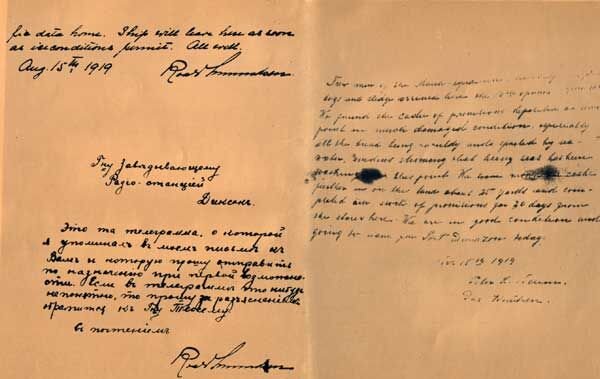 for data home. Ship will leave here as soon
as iceconditions permit. All well.
Aug. 15th, 1919
Roald Amundsen.
Г-ну Завѣдывающему
Радіо-станціей
Диксонъ.
Это та телеграмма, о которой
я упоминалъ въ моемъ письмѣ къ
Вамъ и которую прошу отправить
по назначенію при первой возможно-
сти. Если въ телеграммѣ что нибудь
непонятно, то прошу за разъясненіемъ
обратится къ Г-ну Тессему.
съ почтеніемъ
Roald Amundsen
Two men of the Maud
dogs and sledge arrived here the
We found the cache of provisions deposited at
point in much damaged condition, especially
all the bread being mouldy and spoiled by
water, evidence showing that heavy seas has been
washing this point. We have cache
further on the land about 25 yards and com-
pleted our stock of provisions for 20 days from
the stores here. We are in good condition and
going to leave for Port today.
15th 1919
Peter L. Tessem.